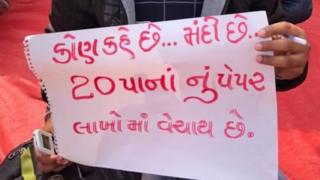 કોણ કહે છે... મંદી છે.
20 પાનાં નું પેપર
લાખો માં વેચાય છે.